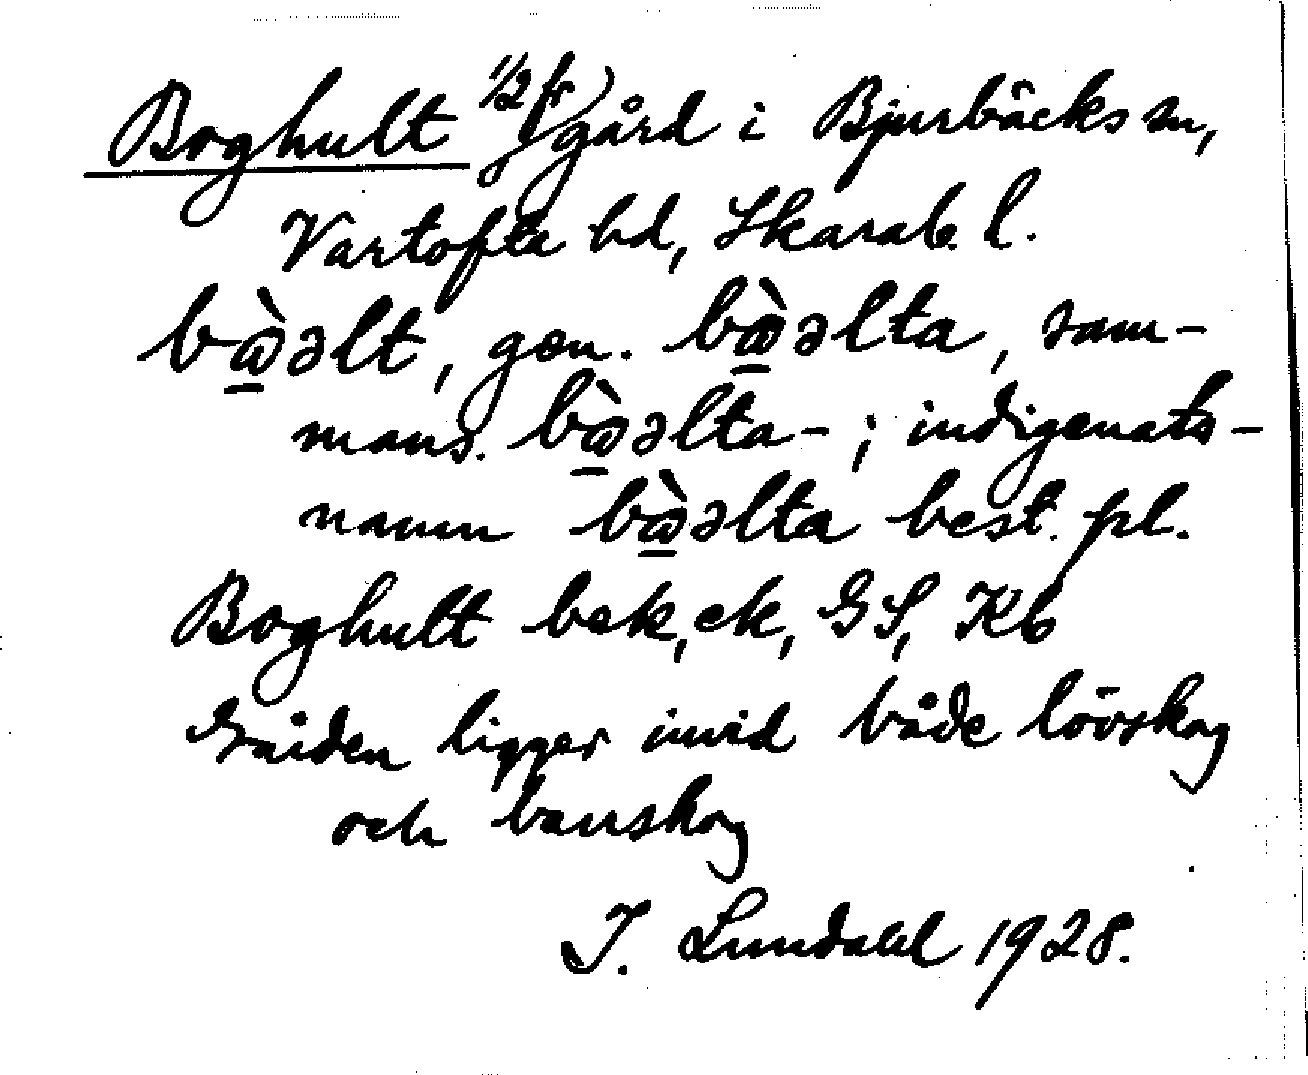 Boghult 1/2 fr) gård i Bjurbäcks sn,
Vartofta hd, Skarab. l.
bὼ̲əlt, gen. bὼ̲əlta, sam-
mans. bὼ̲əlta- ; indigenats-
namn bὼ̲əlta best. pl.
Boghult bek, ek, GS, Kb
Gården ligger invid både lövskog
och barrskog
I. Lundahl 1928.